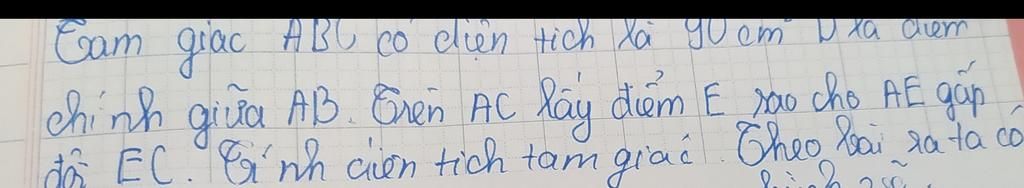 Tam giác ABC có diện tích là 90 cm² D là điểm
chính giữa AB. Trên AC lấy điểm E sao cho AE gấp
đôi EC. Tính diện tích tam giác. Theo bài ra ta có